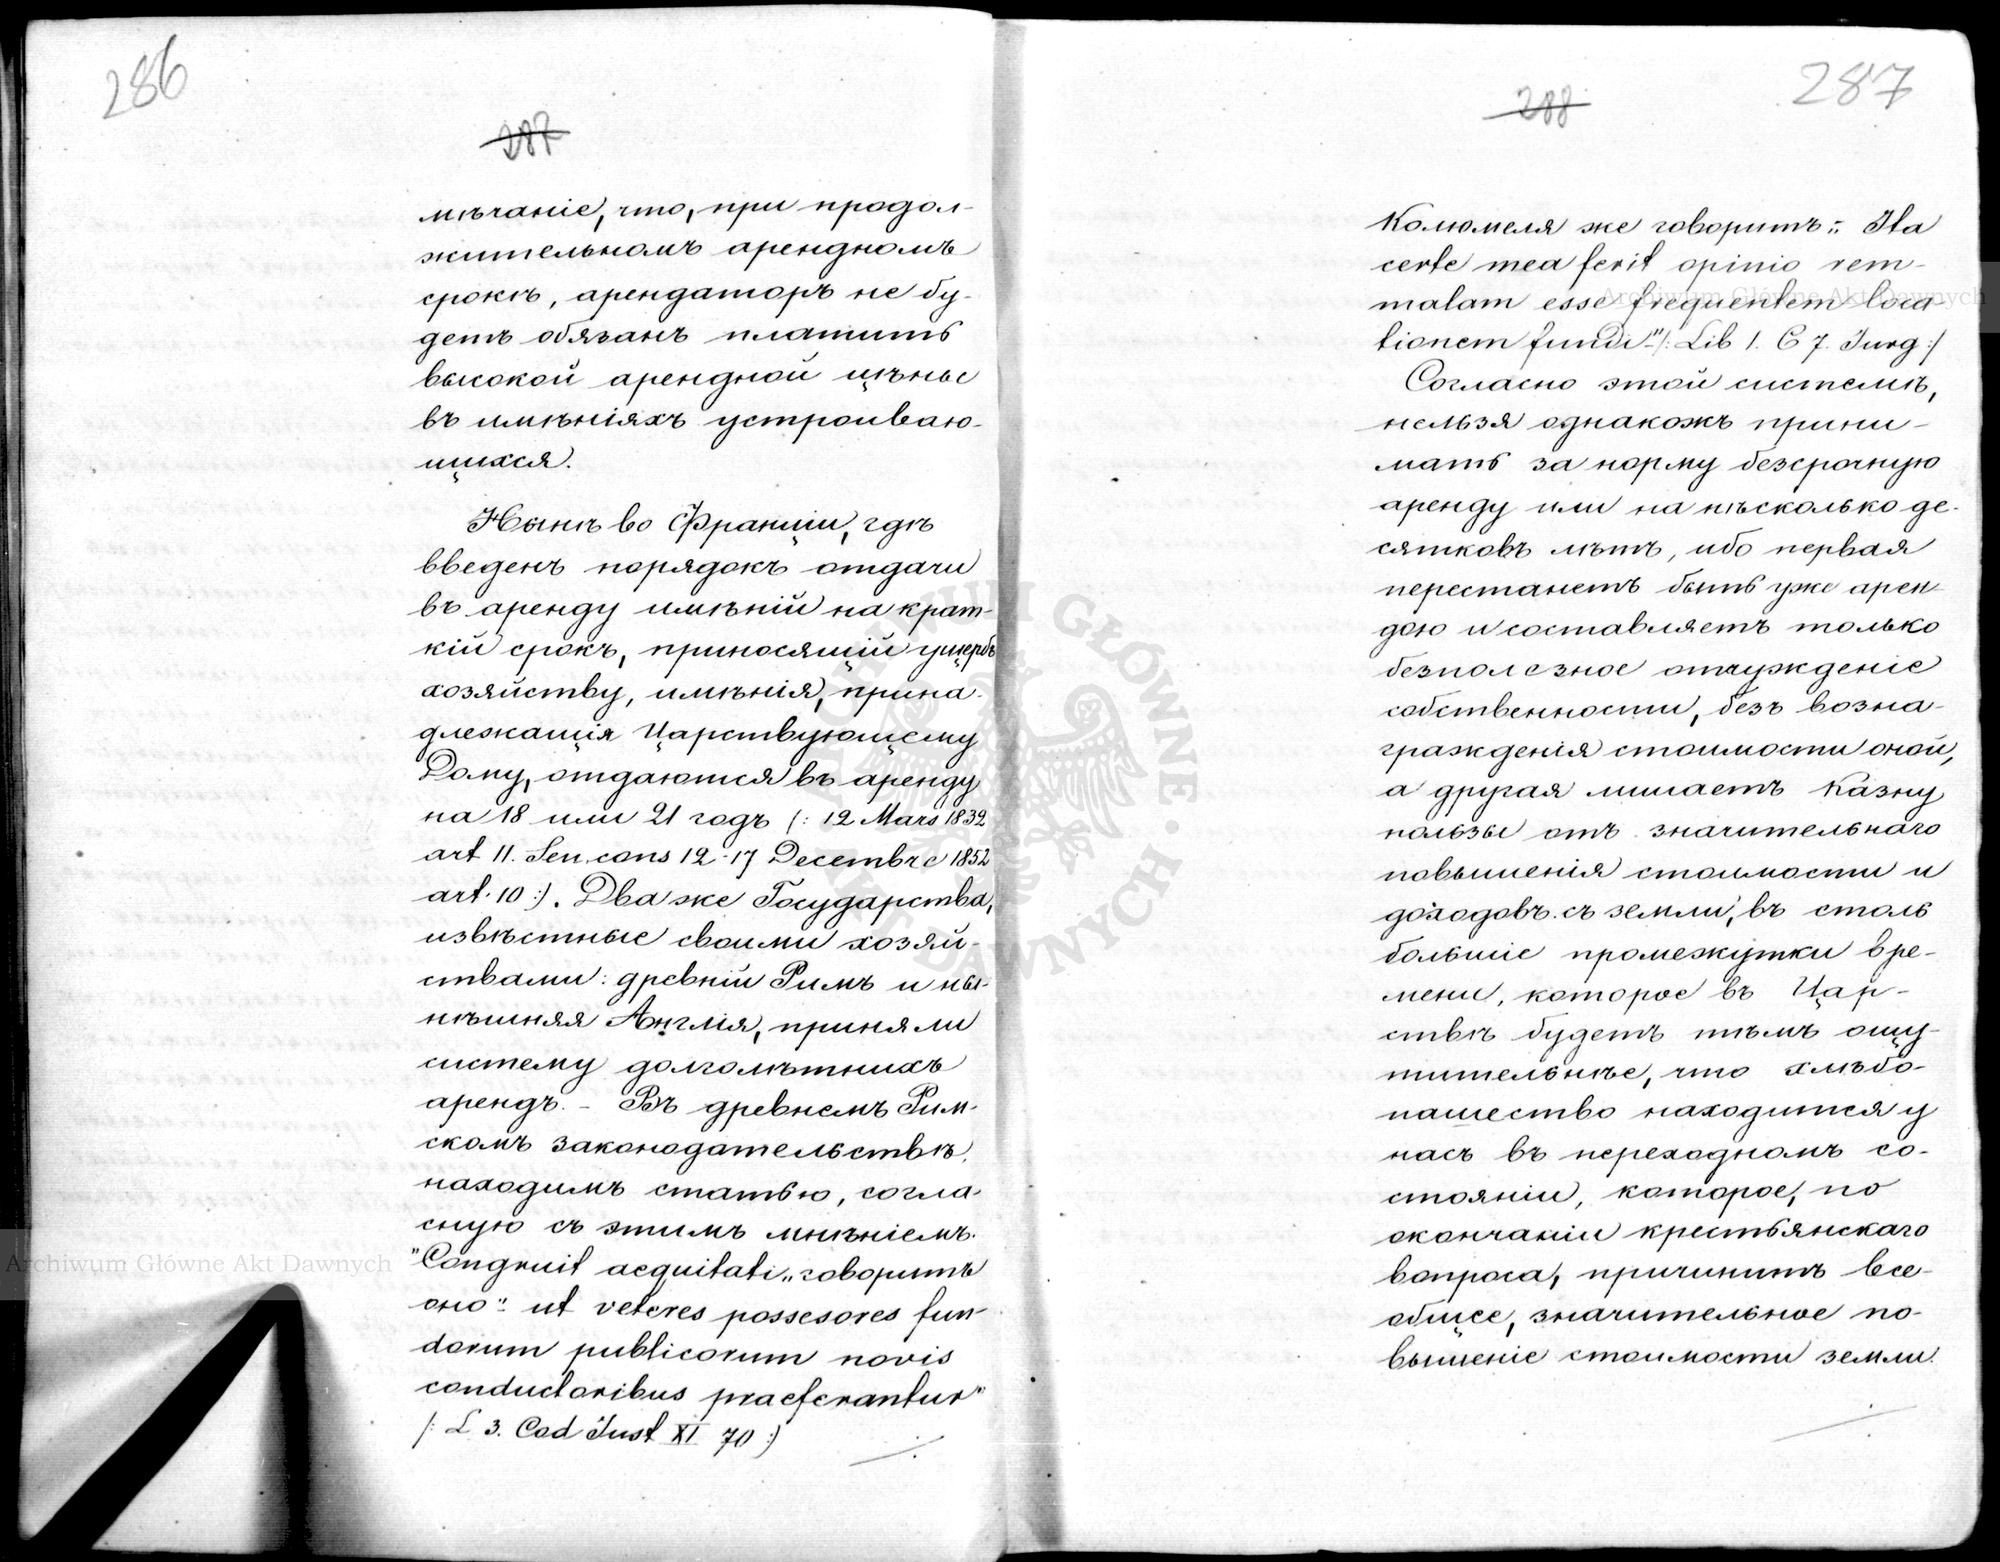 286
287
мѣчаніе, что, при продол-
жительномъ арендномъ
срокѣ, арендаторъ не бу-
детъ обязанъ платить
высокой арендной цѣны
въ имѣніяхъ устроиваю-
щихся.
Нынѣ во Франціи, гдѣ
введенъ порядокъ отдачи
въ аренду имѣній на крат-
кій срокъ, приносящій ущербъ
хозяйству, имѣнія, прина-
длежащія Царствующему
Дому, отдаются въ аренду
на 18 или 21 годъ (: 12 Mars 1832
art 11. Sen. cons 12-17 Decembre 1852
art. 10 :). Два же Государства,
извѣстные своими хозяй-
ствами: древній Римъ и ны-
нѣшняя Англія, приняли
систему долголѣтнихъ
арендъ. - Въ древнемъ Рим-
скомъ законодательствѣ,
находимъ статью, согла-
сную съ этимъ мнѣніемъ.
"Congruit aequitati„ говоритъ
оно „ ut veteres possesores fun-
dorum publicorum novis
conductoribus praeferantur"
/: L 3. Cod Just XI 70 :)
287
288
Колюмеля же говоритъ: „ Ita
certe mea ferit opinio rem-
malam esse frequentem loca-
tionem fundi" /: Lib 1. C 7. Jurg :/
Согласно этой системѣ,
нельзя однакожъ прини-
мать за норму безсрочную
аренду или на нѣсколько де-
сятковъ лѣтъ, ибо первая
перестанетъ быть уже арен-
дою и составляетъ только
безполезное отчужденіе
собственности, безъ возна-
гражденія стоимости оной,
а другая лишаетъ Казну
пользы отъ значительнаго
повышенія стоимости и
доходовъ съ земли, въ столь
большіе промежутки вре-
мени, которое въ Цар-
ствѣ будетъ тѣмъ ощу-
тительнѣе, что хлѣбо-
пашество находится у
насъ въ переходномъ со-
стояніи, которое, по
окончаніи крестьянскаго
вопроса, причинитъ все-
общее, значительное по-
вышеніе стоимости земли.
Archiwum Główne Akt Dawnych
Archiwum Główne Akt Dawnych
ARCHIWUM GŁÓWNE · AKT DAWNYCH ·